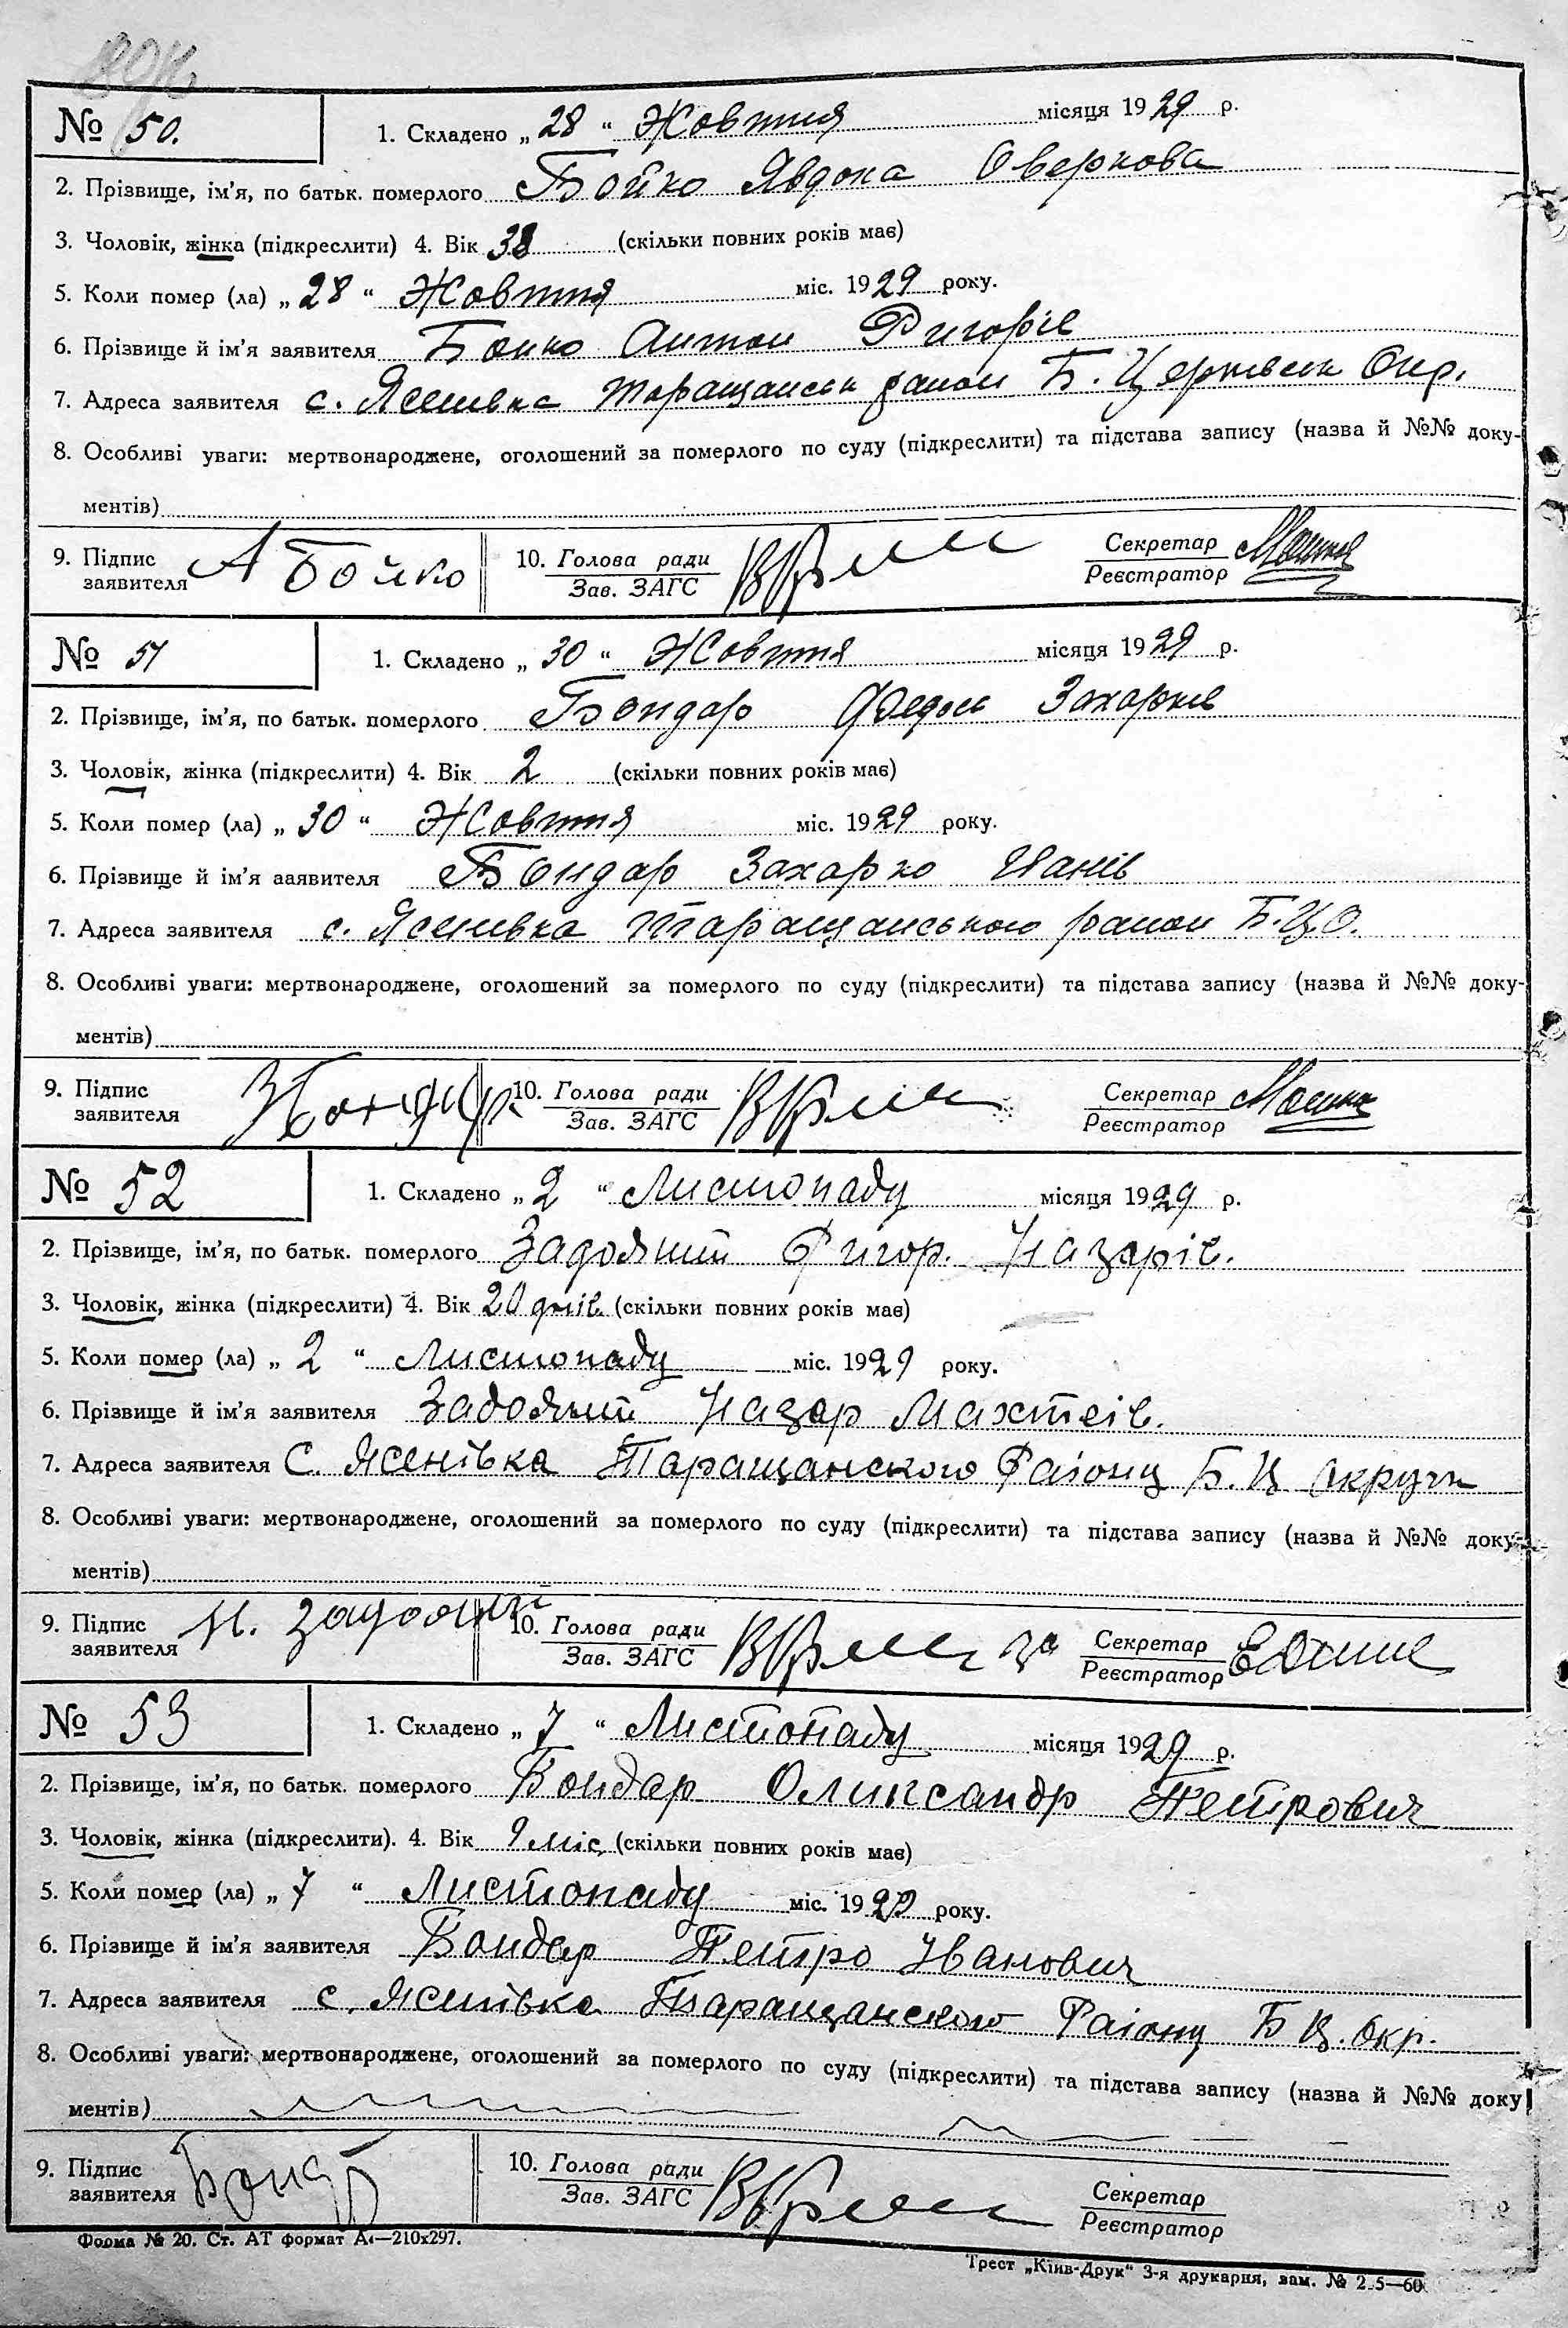 № 50.
1. Складено „28“ Жовтня місяця 1929 р.
2. Прізвище, ім'я, по батьк. померлого Бойко Явдоха Оверкова
3. Чоловік, жінка (підкреслити) 4. Вік 38 (скільки повних років має)
5. Коли помер (ла) „28“ Жовтня міс. 1929 року.
6. Прізвище й ім'я заявителя Бойко Антон Григорів
7. Адреса заявителя с. Ясенівка Таращанськ район Б. Церківськ Окр.
8. Особливі уваги: мертвонароджене, оголошений за померлого по суду (підкреслити) та підстава запису (назва й №№ доку-
ментів)
9. Підпис заявителя А Бойко
10. Голова ради
Зав. ЗАГС
Секретар
Реєстратор
№ 51
1. Складено „30“ Жовтня місяця 1929 р.
2. Прізвище, ім'я, по батьк. померлого Бондар Федось Захарків
3. Чоловік, жінка (підкреслити) 4. Вік 2 (скільки повних років має)
5. Коли помер (ла) „30“ Жовтня міс. 1929 року.
6. Прізвище й ім'я заявителя Бондар Захарко Іванів
7. Адреса заявителя с. Ясенівка Таращанського район Б.Ц.О.
8. Особливі уваги: мертвонароджене, оголошений за померлого по суду (підкреслити) та підстава запису (назва й №№ доку-
ментів)
9. Підпис заявителя З Бондар
10. Голова ради
Зав. ЗАГС
Секретар
Реєстратор
№ 52
1. Складено „2“ Листопаду місяця 1929 р.
2. Прізвище, ім'я, по батьк. померлого Задояний Григор. Назарів.
3. Чоловік, жінка (підкреслити) 4. Вік 20 днів (скільки повних років має)
5. Коли помер (ла) „2“ Листопаду міс. 1929 року.
6. Прізвище й ім'я заявителя Задояний Назар Махтеів.
7. Адреса заявителя С. Ясенівка Таращанского Раіону Б. Ц Округи
8. Особливі уваги: мертвонароджене, оголошений за померлого по суду (підкреслити) та підстава запису (назва й №№ доку-
ментів)
9. Підпис заявителя Н. Задояний
10. Голова ради
Зав. ЗАГС
за Секретар
Реєстратор
№ 53
1. Складено „7“ Листопаду місяця 1929 р.
2. Прізвище, ім'я, по батьк. померлого Бондар Олександр Петрович
3. Чоловік, жінка (підкреслити). 4. Вік 9 міс (скільки повних років має)
5. Коли помер (ла) „7“ Листопаду міс. 1929 року.
6. Прізвище й ім'я заявителя Бондар Петро Іванович
7. Адреса заявителя с. Ясенівка Таращанского Раіону Б Ц. Окр.
8. Особливі уваги: мертвонароджене, оголошений за померлого по суду (підкреслити) та підстава запису (назва й №№ доку
ментів)
9. Підпис заявителя Бондар
10. Голова ради
Зав. ЗАГС
Секретар
Реєстратор
Форма № 20. Ст. АТ формат А4—210х297.
Трест „Київ-Друк“ 3-я друкарня, зам. № 2.5—60